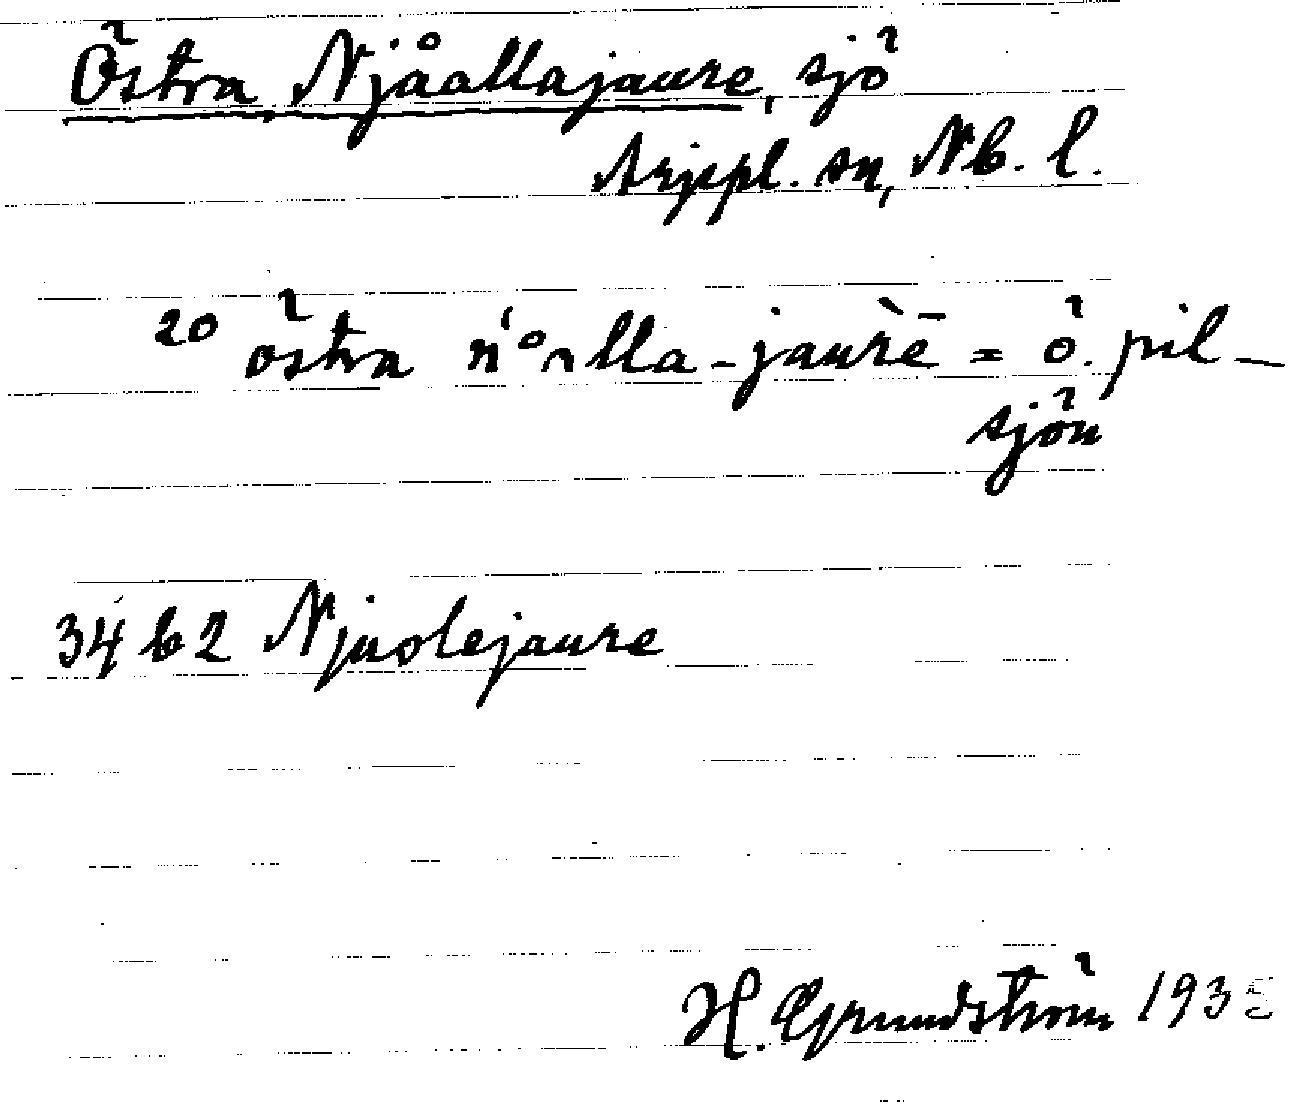 Östra Njåallajaure, sjö
Arjepl. sn, Nb. l.
20 östra
= ö. pil-
sjön
34 b2 Njuolejaure
H. Grundström